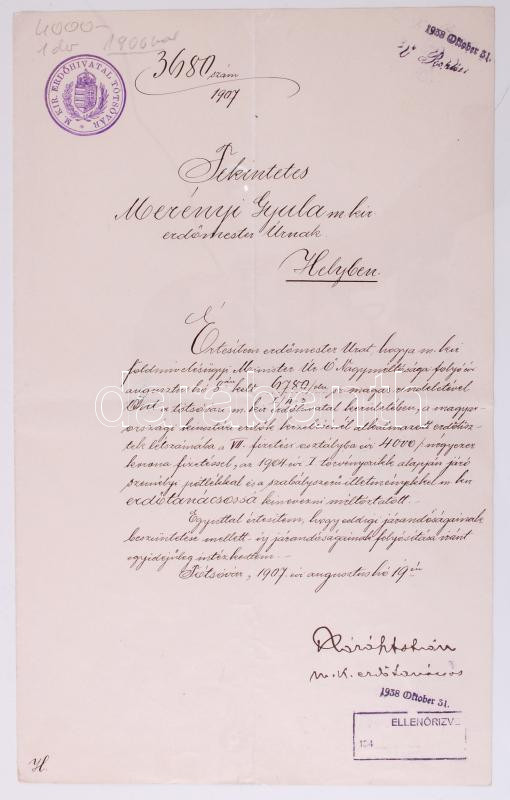 4000-
1 db 1900
3680 szám
1907
M. KIR. ERDŐHIVATAL TÓTSÓVÁR
1938 Oktober 31.
Tekintetes
Merényi Gyula m kir
erdőmester Úrnak
Helyben.
Értesítem erdőmester Urat, hogy a m. kir
földmivelésügyi Minister Úr Ő Nagyméltósága folyó évi
augusztus hó 8án kelt 6780 számú magas rendeletével
Önt a tótsóvári m. kir. erdőhivatal kerületében, a magyar-
országi kincstári erdők kezelésénél alkalmazott erdőtisz-
tek létszámába a VII. fizetési osztályba évi 4000/négyezer
korona fizetéssel, az 1904 évi I törvényczikk alapján járó
személyi pótlékkal és a szabályszerű illetményekkel m. kir
erdőtanácsossá kinevezni méltóztatott.
Egyúttal értesítem, hogy eddigi járandóságainak
beszüntetése mellett új járandóságainak folyósítása iránt
egyidejűleg intézkedtem.
Tótsóvár, 1907. évi augusztus hó 19én
István
m. k. erdőtanácsos
1938 Oktober 31.
ELLENŐRIZVE
194
H.
darabanth